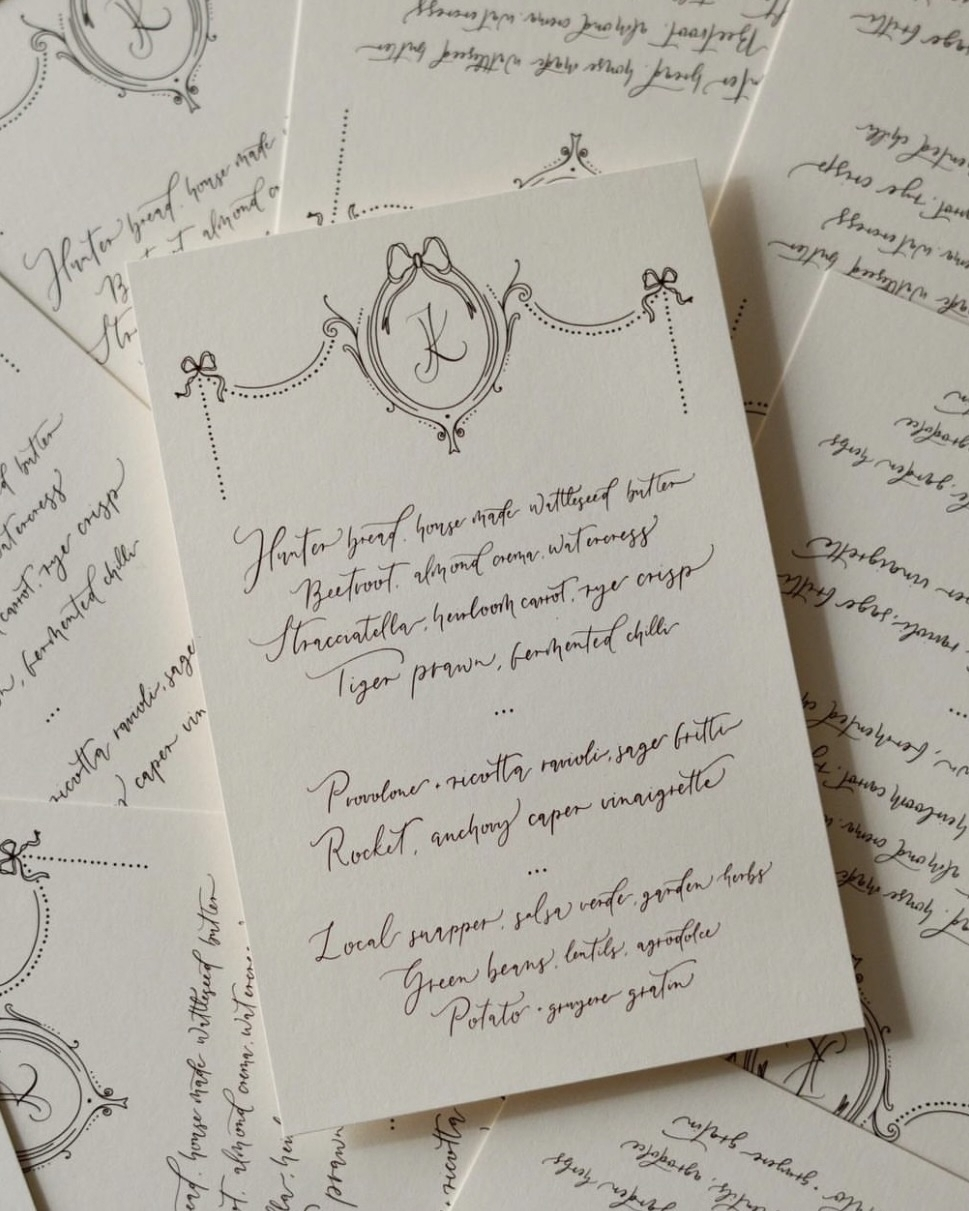 K
Hunter bread, house made wattleseed butter
Beetroot, almond crema, watercress
Stracciatella, heirloom carrot, rye crisp
Tiger prawn, fermented chilli
...
Provolone + ricotta ravioli, sage fritti
Rocket, anchovy caper vinaigrette
...
Local snapper, salsa verde, garden herbs
Green beans, lentils, agrodolce
Potato + gruyere gratin